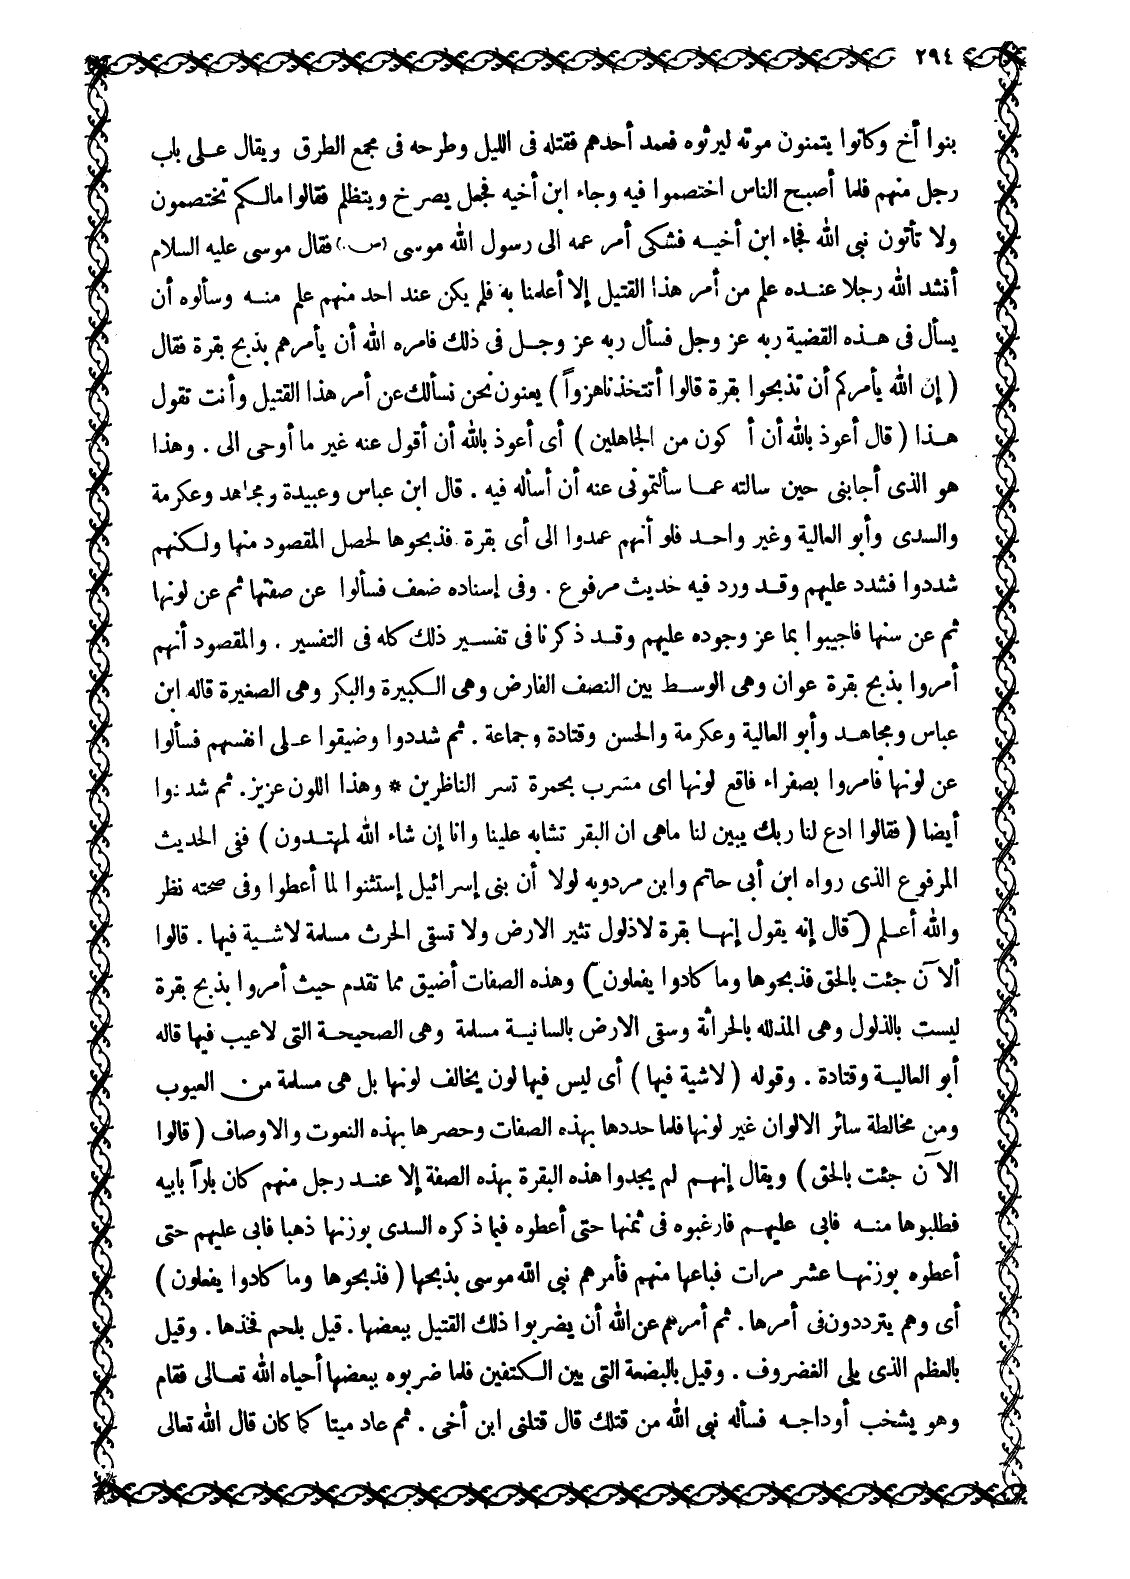 ٢٩٤
بنوا أخ وكانوا يتمنون موته ليرثوه فعمد أحدهم فقتله فى الليل وطرحه فى مجمع الطرق ويقال على باب
رجل منهم فلما أصبح الناس اختصموا فيه وجاء ابن أخيه فجعل يصرخ ويتظلم فقالوا مالكم تختصمون
ولا تأتون نبى الله فجاء ابن أخيه فشكى أمر عمه الى رسول الله موسى (س) فقال موسى عليه السلام
أنشد الله رجلا عنده علم من أمر هذا القتيل إلا أعلمنا به فلم يكن عند احد منهم علم منه وسألوه أن
يسأل فى هذه القضية ربه عز وجل فسأل ربه عز وجل فى ذلك فامره الله أن يأمرهم بذبح بقرة فقال
( إن الله يأمركم أن تذبحوا بقرة قالوا أتتخذناهزواً ) يعنون نحن نسألك عن أمر هذا القتيل وأنت تقول
هذا ( قال أعوذ بالله أن أ كون من الجاهلين ) أى أعوذ بالله أن أقول عنه غير ما أوحى الى . وهذا
هو الذى أجابنى حين سالته عما سألتمونى عنه أن أسأله فيه . قال ابن عباس وعبيدة ومجاهد وعكرمة
والسدى وأبو العالية وغير واحد فلو أنهم عمدوا الى أى بقرة فذبحوها لحصل المقصود منها ولكنهم
شددوا فشدد عليهم وقد ورد فيه حديث مرفوع . وفى إسناده ضعف فسألوا عن صفتها ثم عن لونها
ثم عن سنها فاجيبوا بما عز وجوده عليهم وقد ذكرنا فى تفسير ذلك كله فى التفسير . والمقصود أنهم
أمروا بذبح بقرة عوان وهى الوسط بين النصف الفارض وهى الكبيرة والبكر وهى الصغيرة قاله ابن
عباس ومجاهد وأبو العالية وعكرمة والحسن وقتادة وجماعة . ثم شددوا وضيقوا على انفسهم فسألوا
عن لونها فامروا بصفراء فاقع لونها اى مشرب بحمرة تسر الناظرين * وهذا اللون عزيز. ثم شددوا
أيضا ( فقالوا ادع لنا ربك يبين لنا ماهى ان البقر تشابه علينا وانا إن شاء الله لمهتدون ) ففى الحديث
المرفوع الذى رواه ابن أبى حاتم وابن مردويه لولا أن بنى إسرائيل إستثنوا لما أعطوا وفى صحته نظر
والله أعلم ( قال إنه يقول إنها بقرة لاذلول تثير الارض ولا تسقى الحرث مسلمة لاشية فيها . قالوا
ألآن جئت بالحق فذبحوها وما كادوا يفعلون ) وهذه الصفات أضيق مما تقدم حيث أمروا بذبح بقرة
ليست بالذلول وهى المذلله بالحراثة وسقى الارض بالسانية مسلمة وهى الصحيحة التى لاعيب فيها قاله
أبو العالية وقتادة . وقوله ( لاشية فيها ) أى ليس فيها لون يخالف لونها بل هى مسلمة من العيوب
ومن مخالطة سائر الالوان غير لونها فلما حددها بهذه الصفات وحصرها بهذه النعوت والاوصاف ( قالوا
الآن جئت بالحق ) ويقال إنهم لم يجدوا هذه البقرة بهذه الصفة إلا عند رجل منهم كان باراً بابيه
فطلبوها منه فابى عليهم فارغبوه فى ثمنها حتى أعطوه فيما ذكره السدى بوزنها ذهبا فابى عليهم حتى
أعطوه بوزنها عشر مرات فباعها منهم فأمرهم نبى الله موسى بذبحها ( فذبحوها وما كادوا يفعلون )
أى وهم يترددون فى أمرها . ثم أمرهم عن الله أن يضربوا ذلك القتيل ببعضها . قيل بلحم فخذها . وقيل
بالعظم الذى يلى الغضروف . وقيل بالبضعة التى بين الكتفين فلما ضربوه ببعضها أحياه الله تعالى فقام
وهو يشخب أوداجه فسأله نبى الله من قتلك قال قتلنى ابن أخى . ثم عاد ميتا كما كان قال الله تعالى